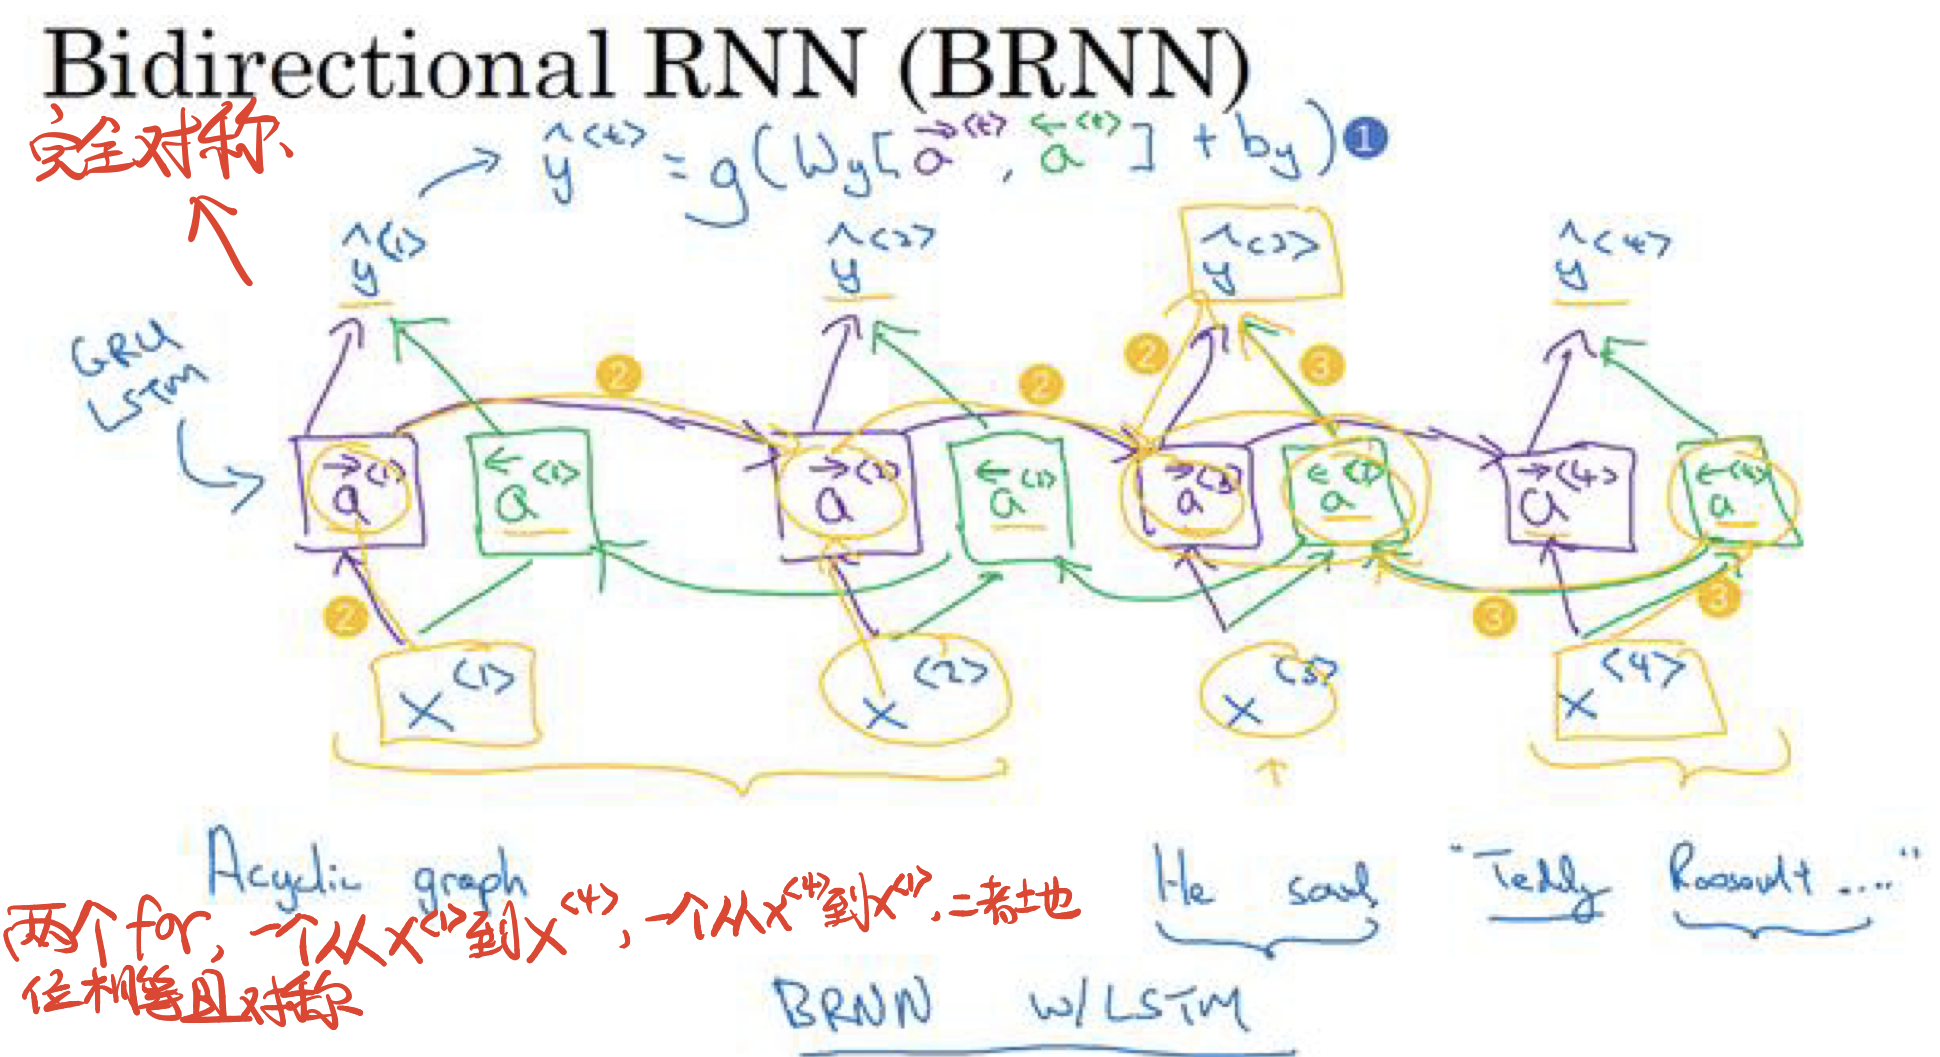 Bidirectional RNN (BRNN)
完全对称
ŷ<t> = g(Wy[a→<t>, a←<t>] + by) 1
ŷ<1> ŷ<2> ŷ<3> ŷ<4>
GRU
LSTM
2 2 2 3
a→<1> a←<1> a→<2> a←<2> a→<3> a←<3> a→<4> a←<4>
2 3 3
x<1> x<2> x<3> x<4>
Acyclic graph He said "Teddy Roosevelt ...."
两个for, 一个从x<1>到x<4>, 一个从x<4>到x<1>, 二者地
位相等且对称
BRNN w/LSTM